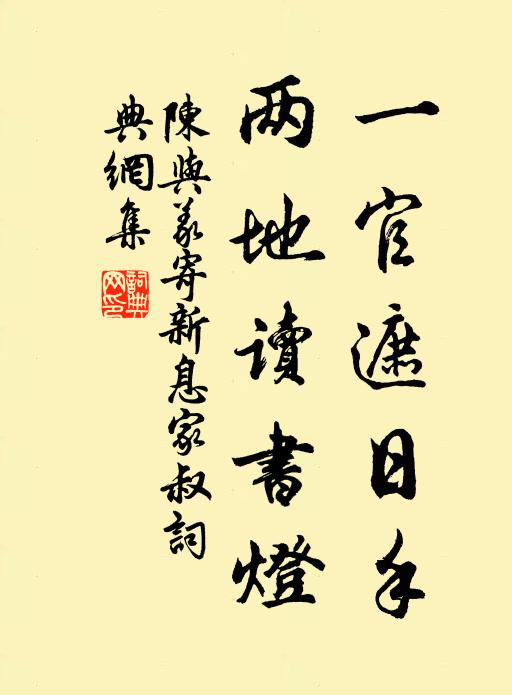 一官遮日手
两地讀書燈
陳與義寄新息家叔詞
典網集
詞典
网印